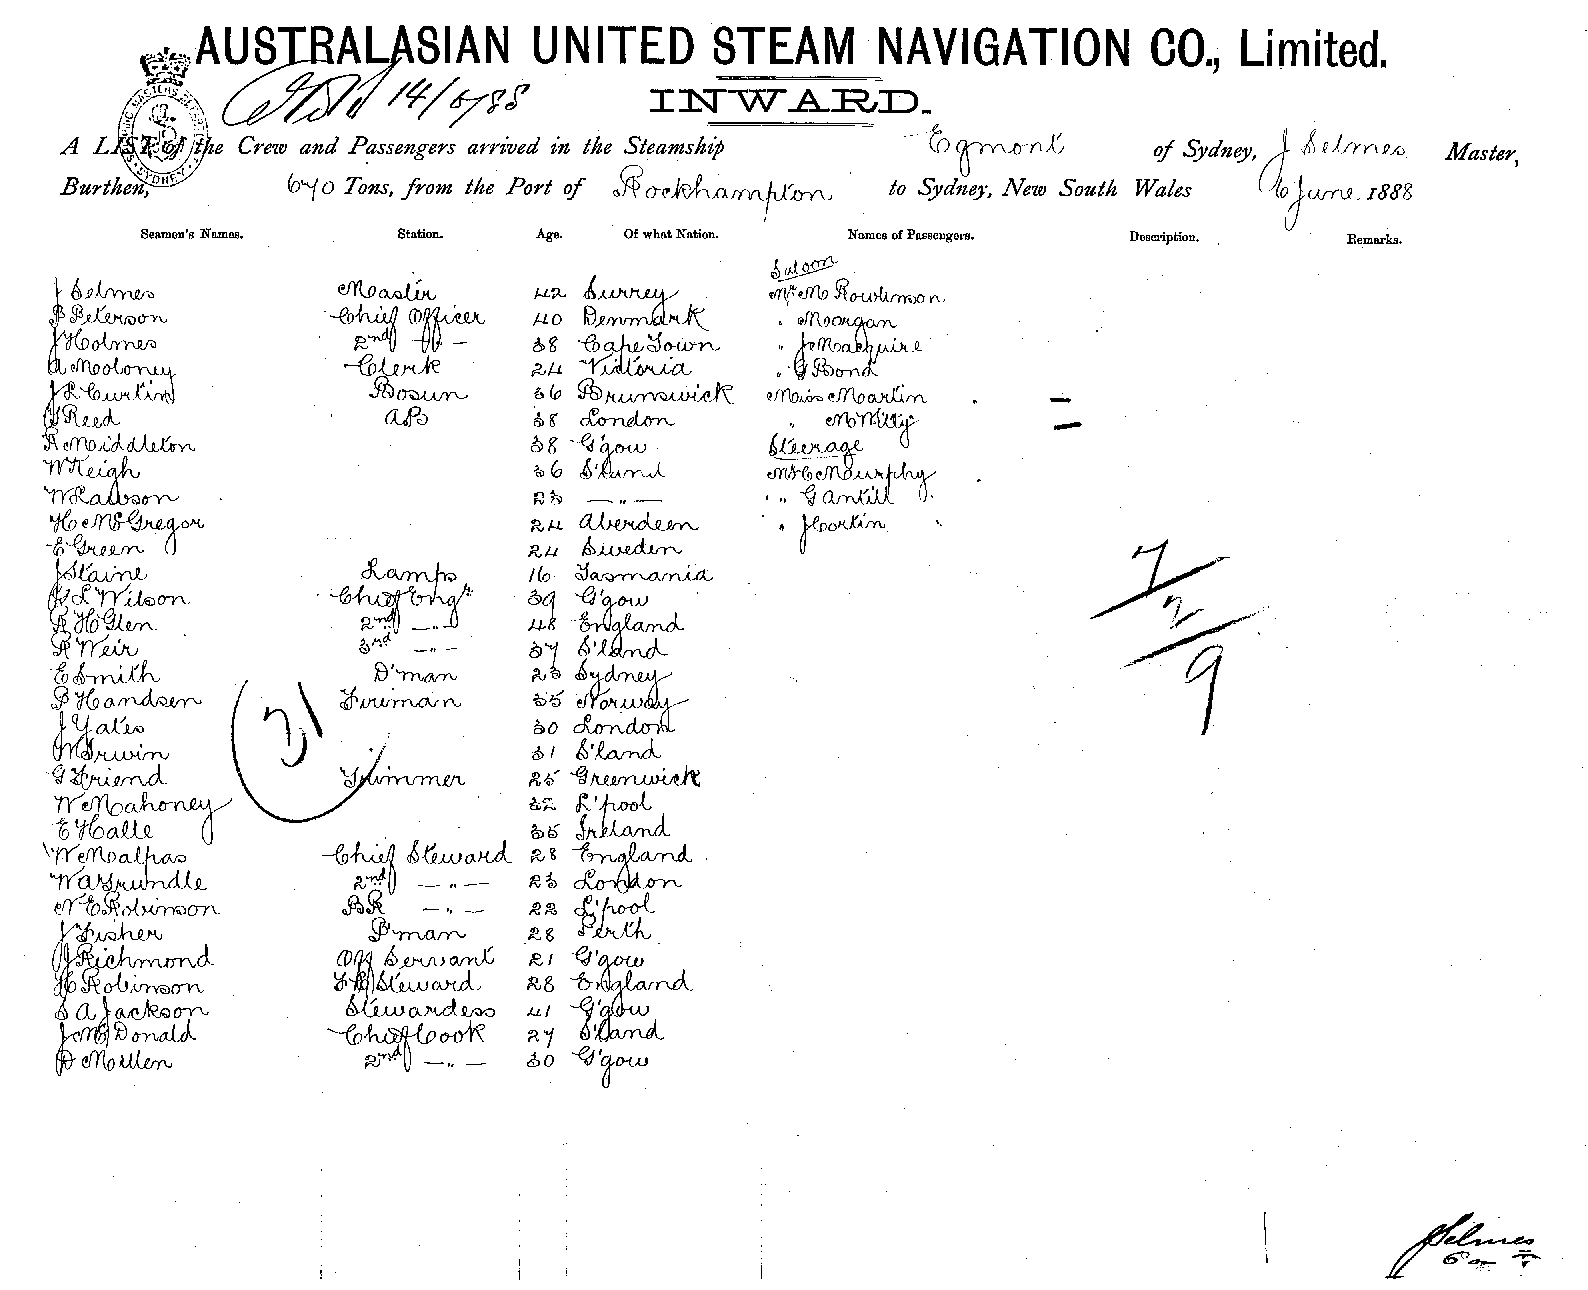 AUSTRALASIAN UNITED STEAM NAVIGATION CO., Limited.
14/6/88
INWARD.
A LIST of the Crew and Passengers arrived in the Steamship Egmont of Sydney, J Selmes Master,
Burthen, 670 Tons, from the Port of Rockhampton to Sydney, New South Wales 6 June 1888
Seamen's Names. Station. Age. Of what Nation. Names of Passengers. Description. Remarks.
Saloon
J Selmes Master 42 Surrey Mr M Rowlinson
P Peterson Chief Officer 40 Denmark " Morgan
J Holmes 2nd - 38 Cape Town " J Macquire
A Moloney Clerk 24 Victoria " G Bond
J L Curtin Bosun 36 Brunswick Miss Martin
G Reed AB 38 London "
R Middleton 38 G'gow Steerage
W Keigh 36 S'land Mr C Murphy
W Lawson 23 — " — " G Antill
H McGregor 24 Aberdeen " J Cortin
E Green 24 Sweden
J Staine Lamps 16 Tasmania
L Wilson Chief Engr 39 G'gow
R H Glen 2nd — " — 48 England
R Weir 3rd — " — 37 S'land
E Smith D'man 23 Sydney
P Handsen Fireman 35 Norway
J Yates 30 London
W Irwin 31 S'land
G Friend Trimmer 25 Greenwick
W Mahoney 32 L'pool
E Halle 35 Ireland
W Malpas Chief Steward 28 England
W A Grundle 2nd — " — 23 London
N E Robinson BR — " — 22 L'pool
J Fisher P'man 28 Perth
J Richmond Off Servant 21 G'gow
H Robinson Steward 28 England
S A Jackson Stewardess 41 G'gow
J McDonald Chief Cook 27 S'land
D Millen 2nd — " — 30 G'gow
31
7
2
9
J Selmes